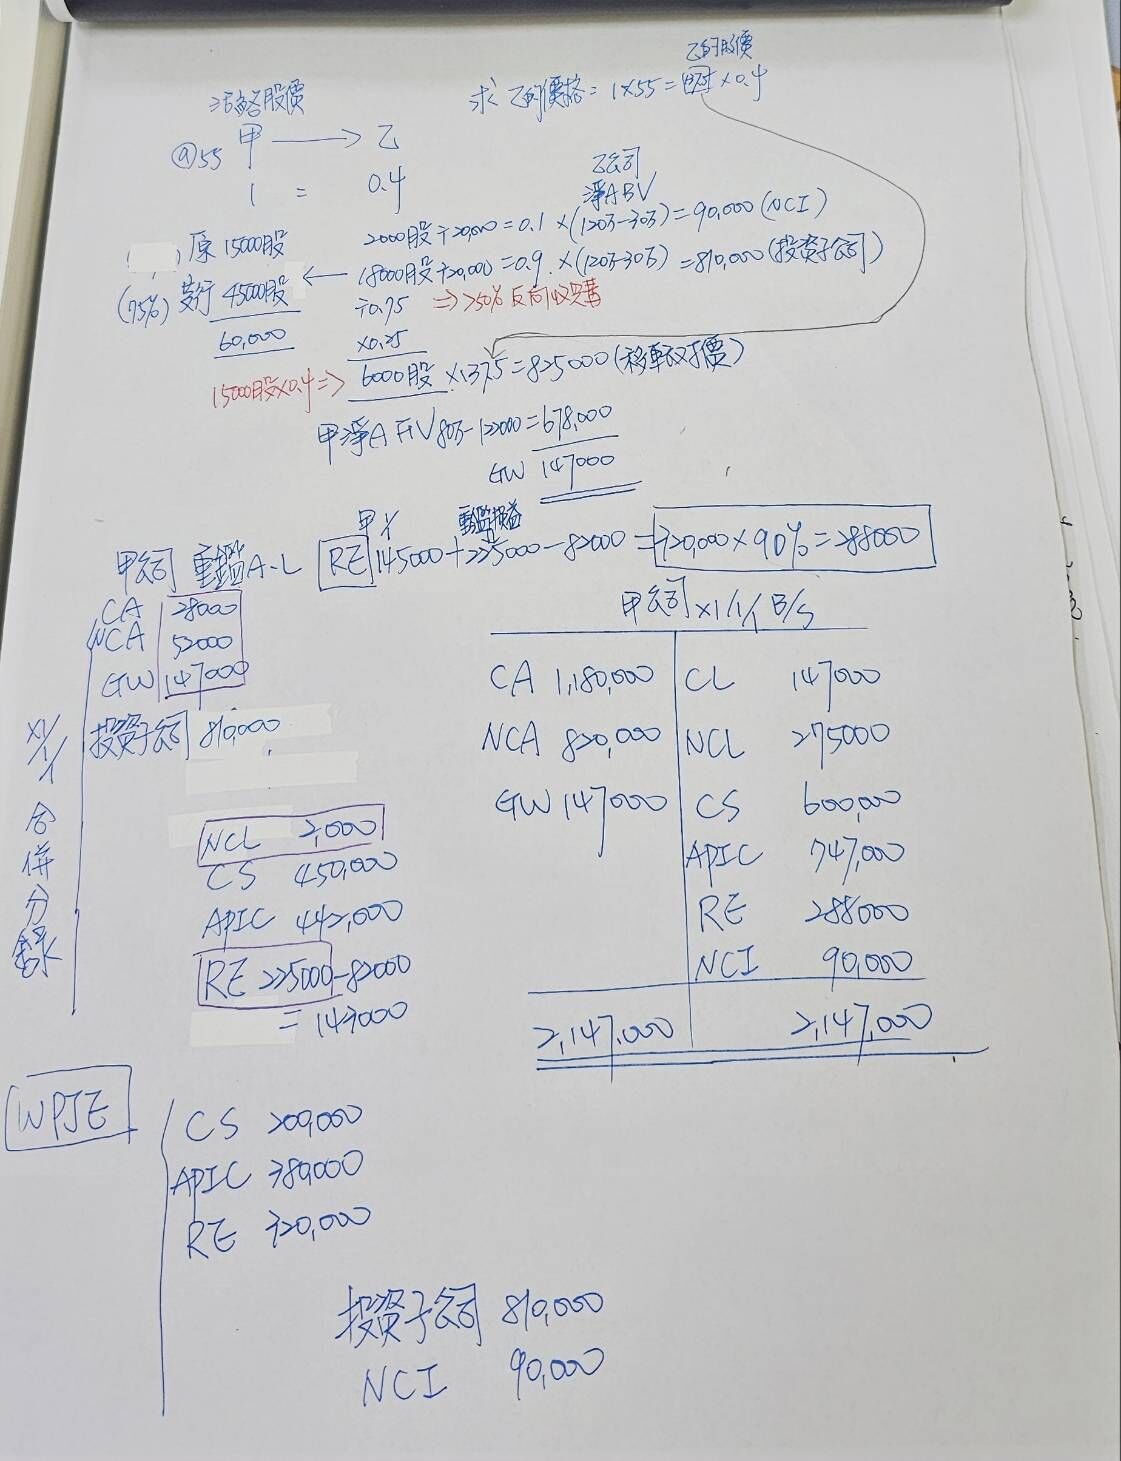 乙的股價
活絡股價 求乙的價格=1×55=137.5×0.4
@55 甲 → 乙
1 = 0.4
乙公司
淨ABV
原15000股 2000股÷20,000=0.1×(120万-30万)=90,000(NCI)
(75%) 發行 45000股 ← 18000股÷20,000=0.9×(120万-30万)=810,000(投資子公司)
÷0.75 ⇒>50%反向收購
60,000 ×0.25
15000股×0.4⇒ 6000股×137.5=825000(移轉對價)
甲淨A FV 80万-122000=678,000
GW 147000
甲× 重鑑損益
甲公司 重鑑A.L RE 145000+225000-82000=320,000×90%=288000
CA 28000
NCA 52000
GW 147000
投資子公司 810,000
NCL 2,000
CS 450,000
APIC 442,000
RE 225000-82000
=143000
X1/1/1 合併分錄
甲公司X1/1/1 B/S
CA 1,180,000 CL 147000
NCA 820,000 NCL 275000
GW 147000 CS 600,000
APIC 747,000
RE 288000
NCI 90,000
2,147,000 2,147,000
WPJE
CS 200,000
APIC 380,000
RE 320,000
投資子公司 810,000
NCI 90,000